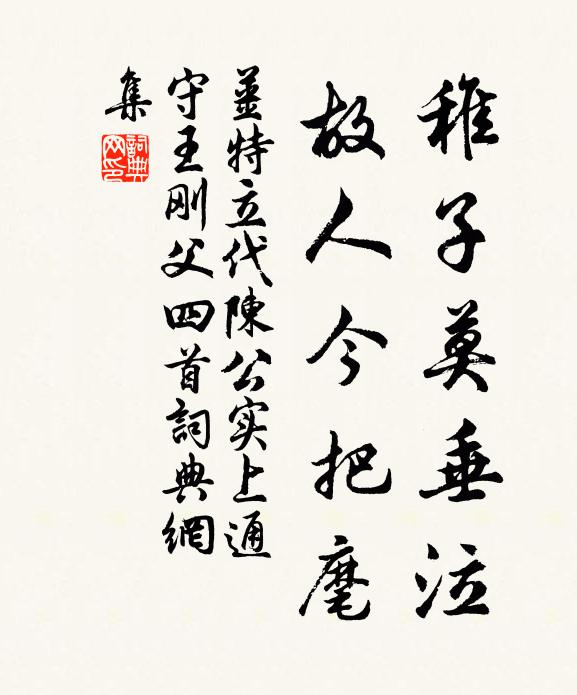 稚子莫垂泣
故人今把麾
姜特立代陳公实上通
守王刚父四首詞典網
集
詞典網印